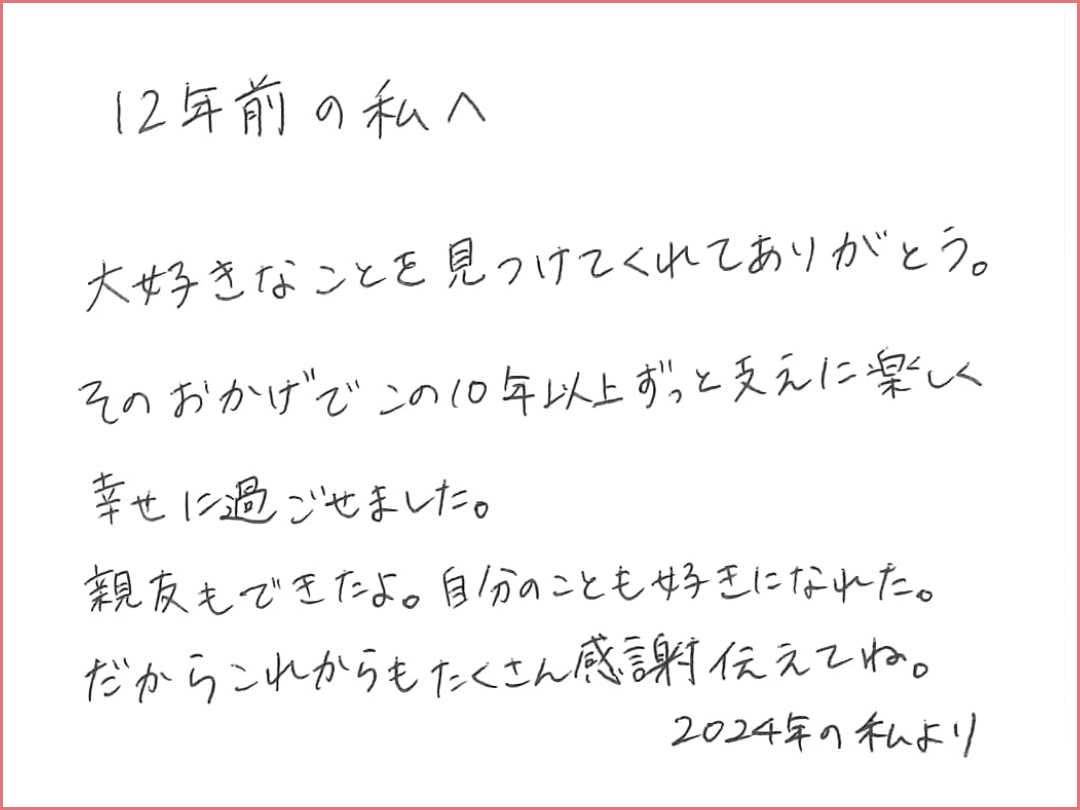 12年前の私へ
大好きなことを見つけてくれてありがとう。
そのおかげでこの10年以上ずっと支えに楽しく
幸せに過ごせました。
親友もできたよ。自分のことも好きになれた。
だからこれからもたくさん感謝伝えてね。
2024年の私より